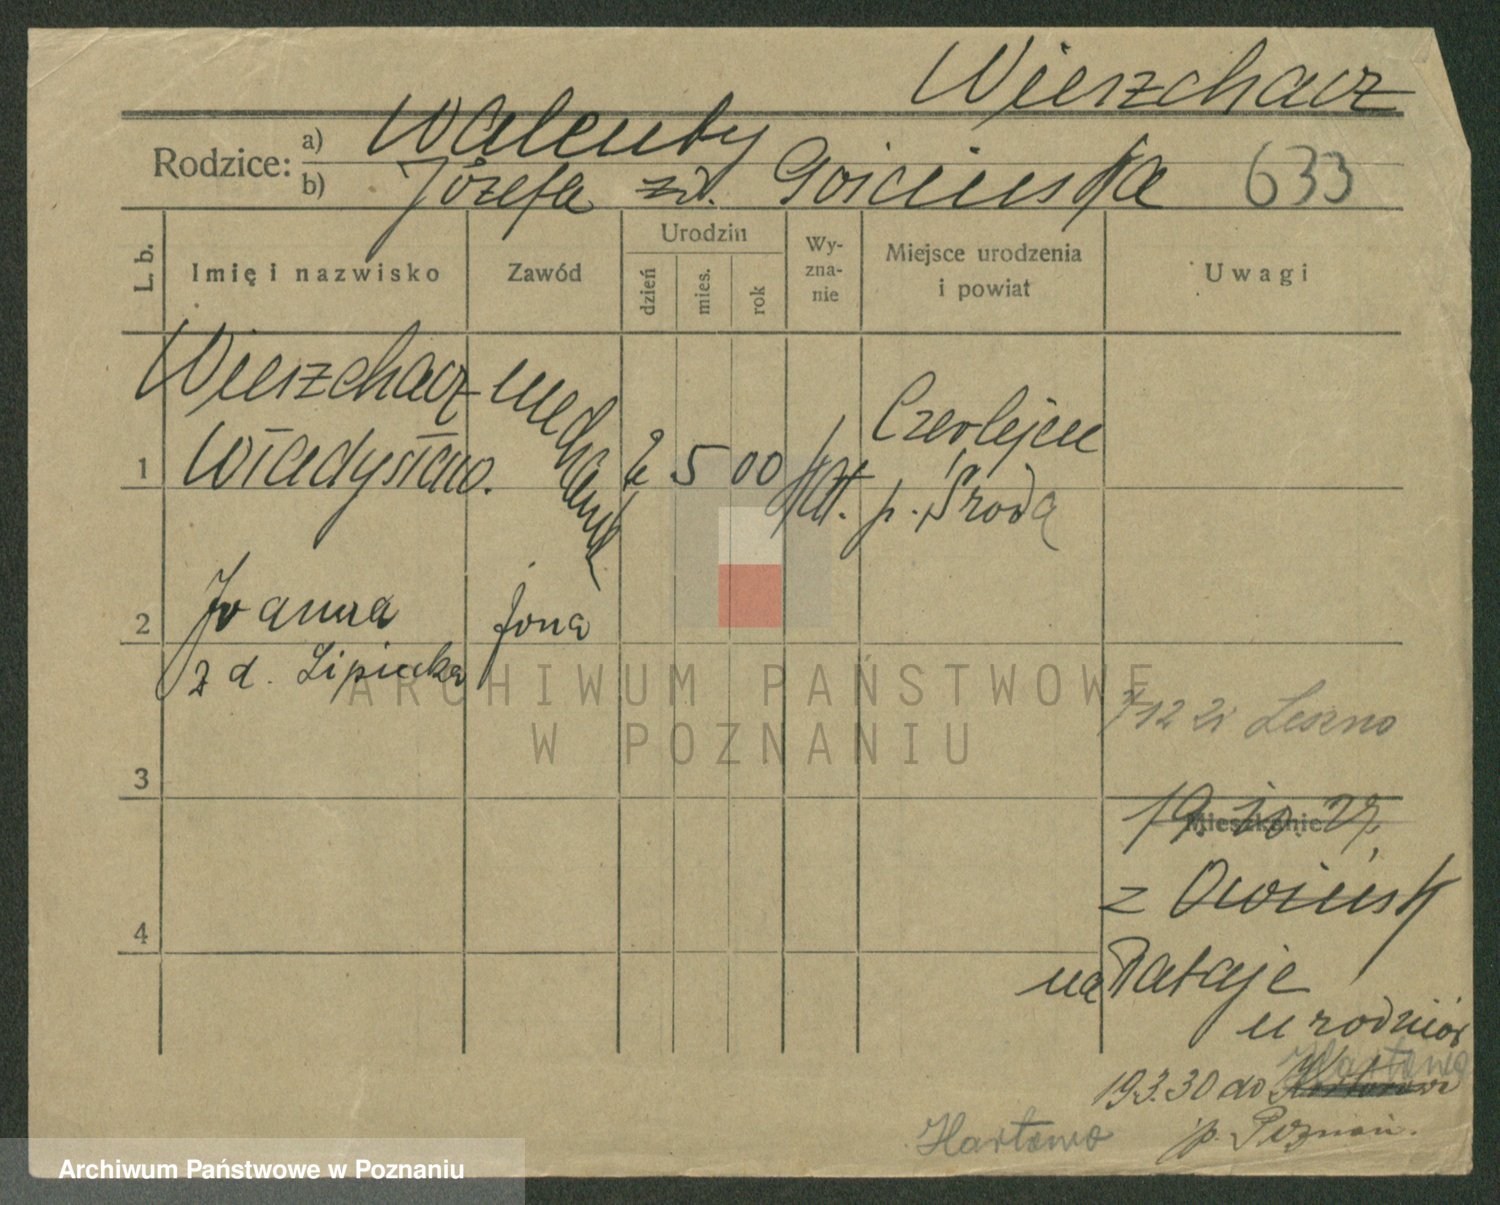 Wierzchacz
Rodzice:
a) Walenty
b) Józefa zd. Gościńska 633
L. b.
Imię i nazwisko
Zawód
Urodzin
dzień
mies.
rok
Wy-
zna-
nie
Miejsce urodzenia
i powiat
Uwagi
Wierzchacz
1 Władysław. mechanik 2 5 00 kat. Czerlejno
p. Środa
2 Joanna żona
zd. Lipiecka
ARCHIWUM PAŃSTWOWE
W POZNANIU
Leszno
3
Mieszkanie
19. 10. 27.
z Owińsk
4
na Rataje
u rodziców
Żartowo
19.3.30 do
Hartowo p. Poznań.
Archiwum Państwowe w Poznaniu